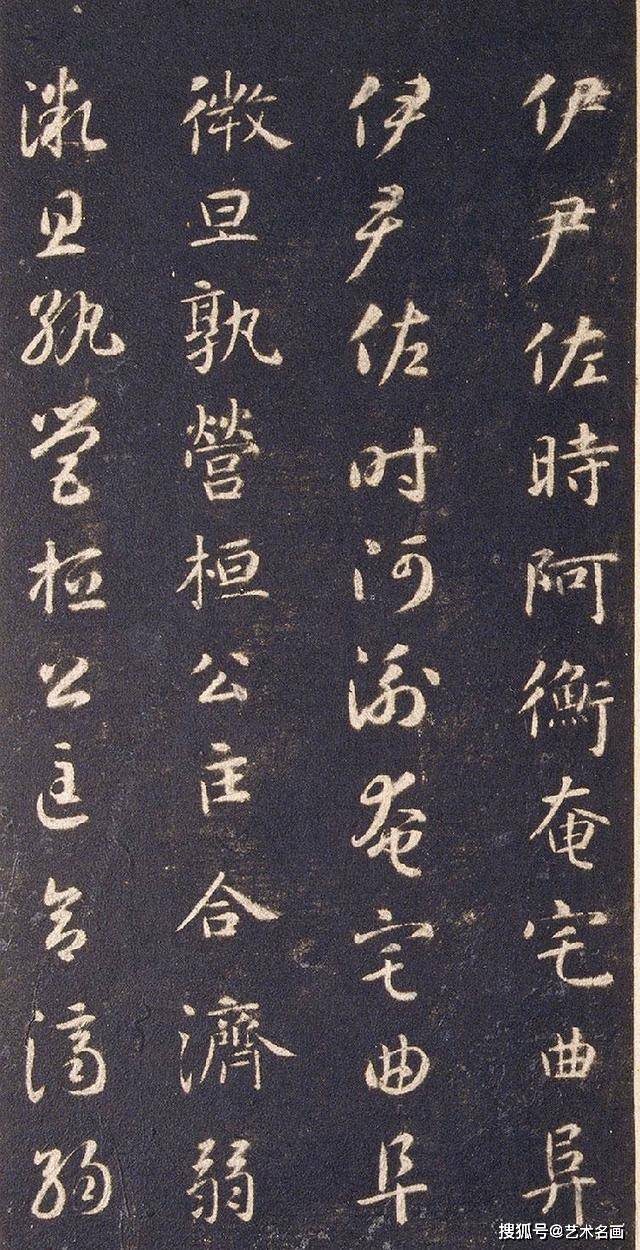 伊尹佐時阿衡奄宅曲阜
伊尹佐时阿衡奄宅曲阜
微旦孰營桓公匡合濟弱
微旦孰營桓公匡合濟弱
搜狐号@艺术名画